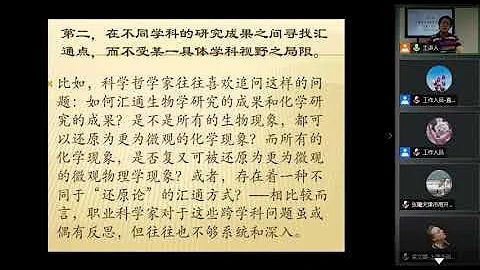 第二，在不同学科的研究成果之间寻找汇
通点，而不受某一具体学科视野之局限。
比如，科学哲学家往往喜欢追问这样的问
题：如何汇通生物学研究的成果和化学研
究的成果？是不是所有的生物现象，都可
以还原为更为微观的化学现象？而所有的
化学现象，是否复又可被还原为更为微观
的微观物理学现象？或者，存在着一种不
同于“还原论”的汇通方式？——相比较而
言，职业科学家对于这些跨学科问题虽或
偶有反思，但往往也不够系统和深入。
主讲人
工作人员